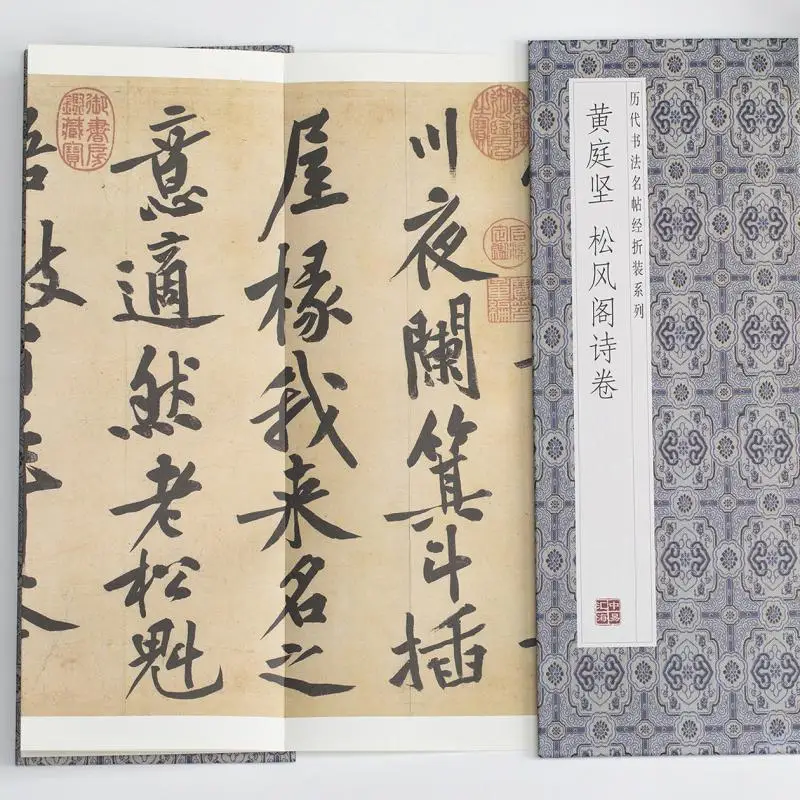 历代书法名帖经折装系列
黄庭坚 松风阁诗卷
川夜闌箕斗插
屋椽我来名之
意適然老松魁
御書房鑑藏寶